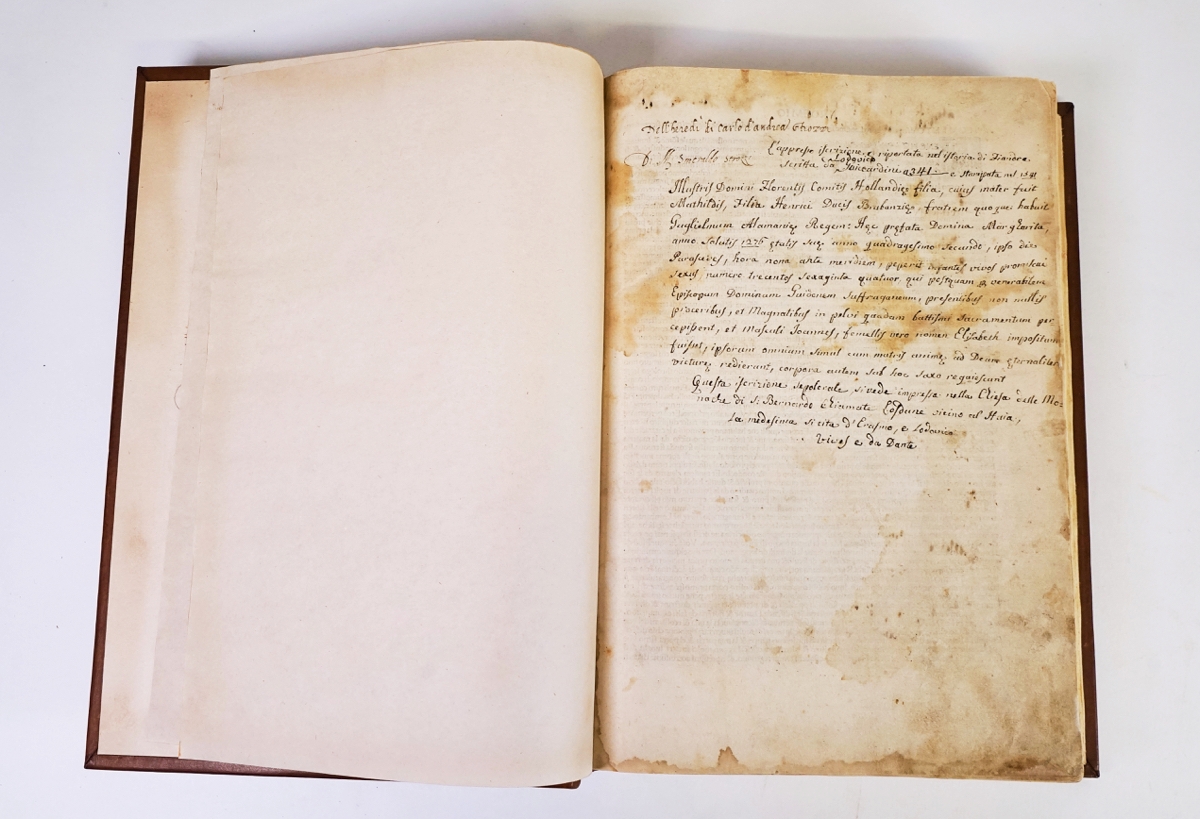 Dell heredi di Carlo d'andrea
L'appresso iscrizione, è riportata nel istoria di Fiandra
scritta da Lodovico Guicciardine a 341. e stampata nel 1581
Illustris Domini Florentis Comitis Hollandię filia, cuius mater fuit
Mathildis, Filia Henrici Ducis Brabanzię, fratrem quoque habuit
Guglielmum Alamanię Regem: Hęc pręfata Domina Margharita,
anno salutis 1276 ętatis suę anno quadragesimo secundo, ipso die
Parasceves, hora nona ante meridiem, peperit infantes vivos promiscui
sexus, numero trecentos sexaginta quatuor, qui postquam p venerabilem
Episcopum Dominum Guidonem Suffraganeum, presentibus non nullis
proceribus, et Magnatibus in pelvi quadam battismi Sacramentum per
cepissent, et Masculi Joannes, femellis vero nomen Elizabeth impositum
fuisset, ipsorum omnium simul cum matris animę ad Deum ęternaliter
victurę redierant, corpora autem sub hoc saxo requiescunt
Questa iscrizione sepolcrale, si vede impressa nella Chiesa delle Mo=
nache di S. Bernardo chiamate Losdune vicino al Haia,
La medesima si cita d'Erasmo, e Lodovico
Vives e da Dante